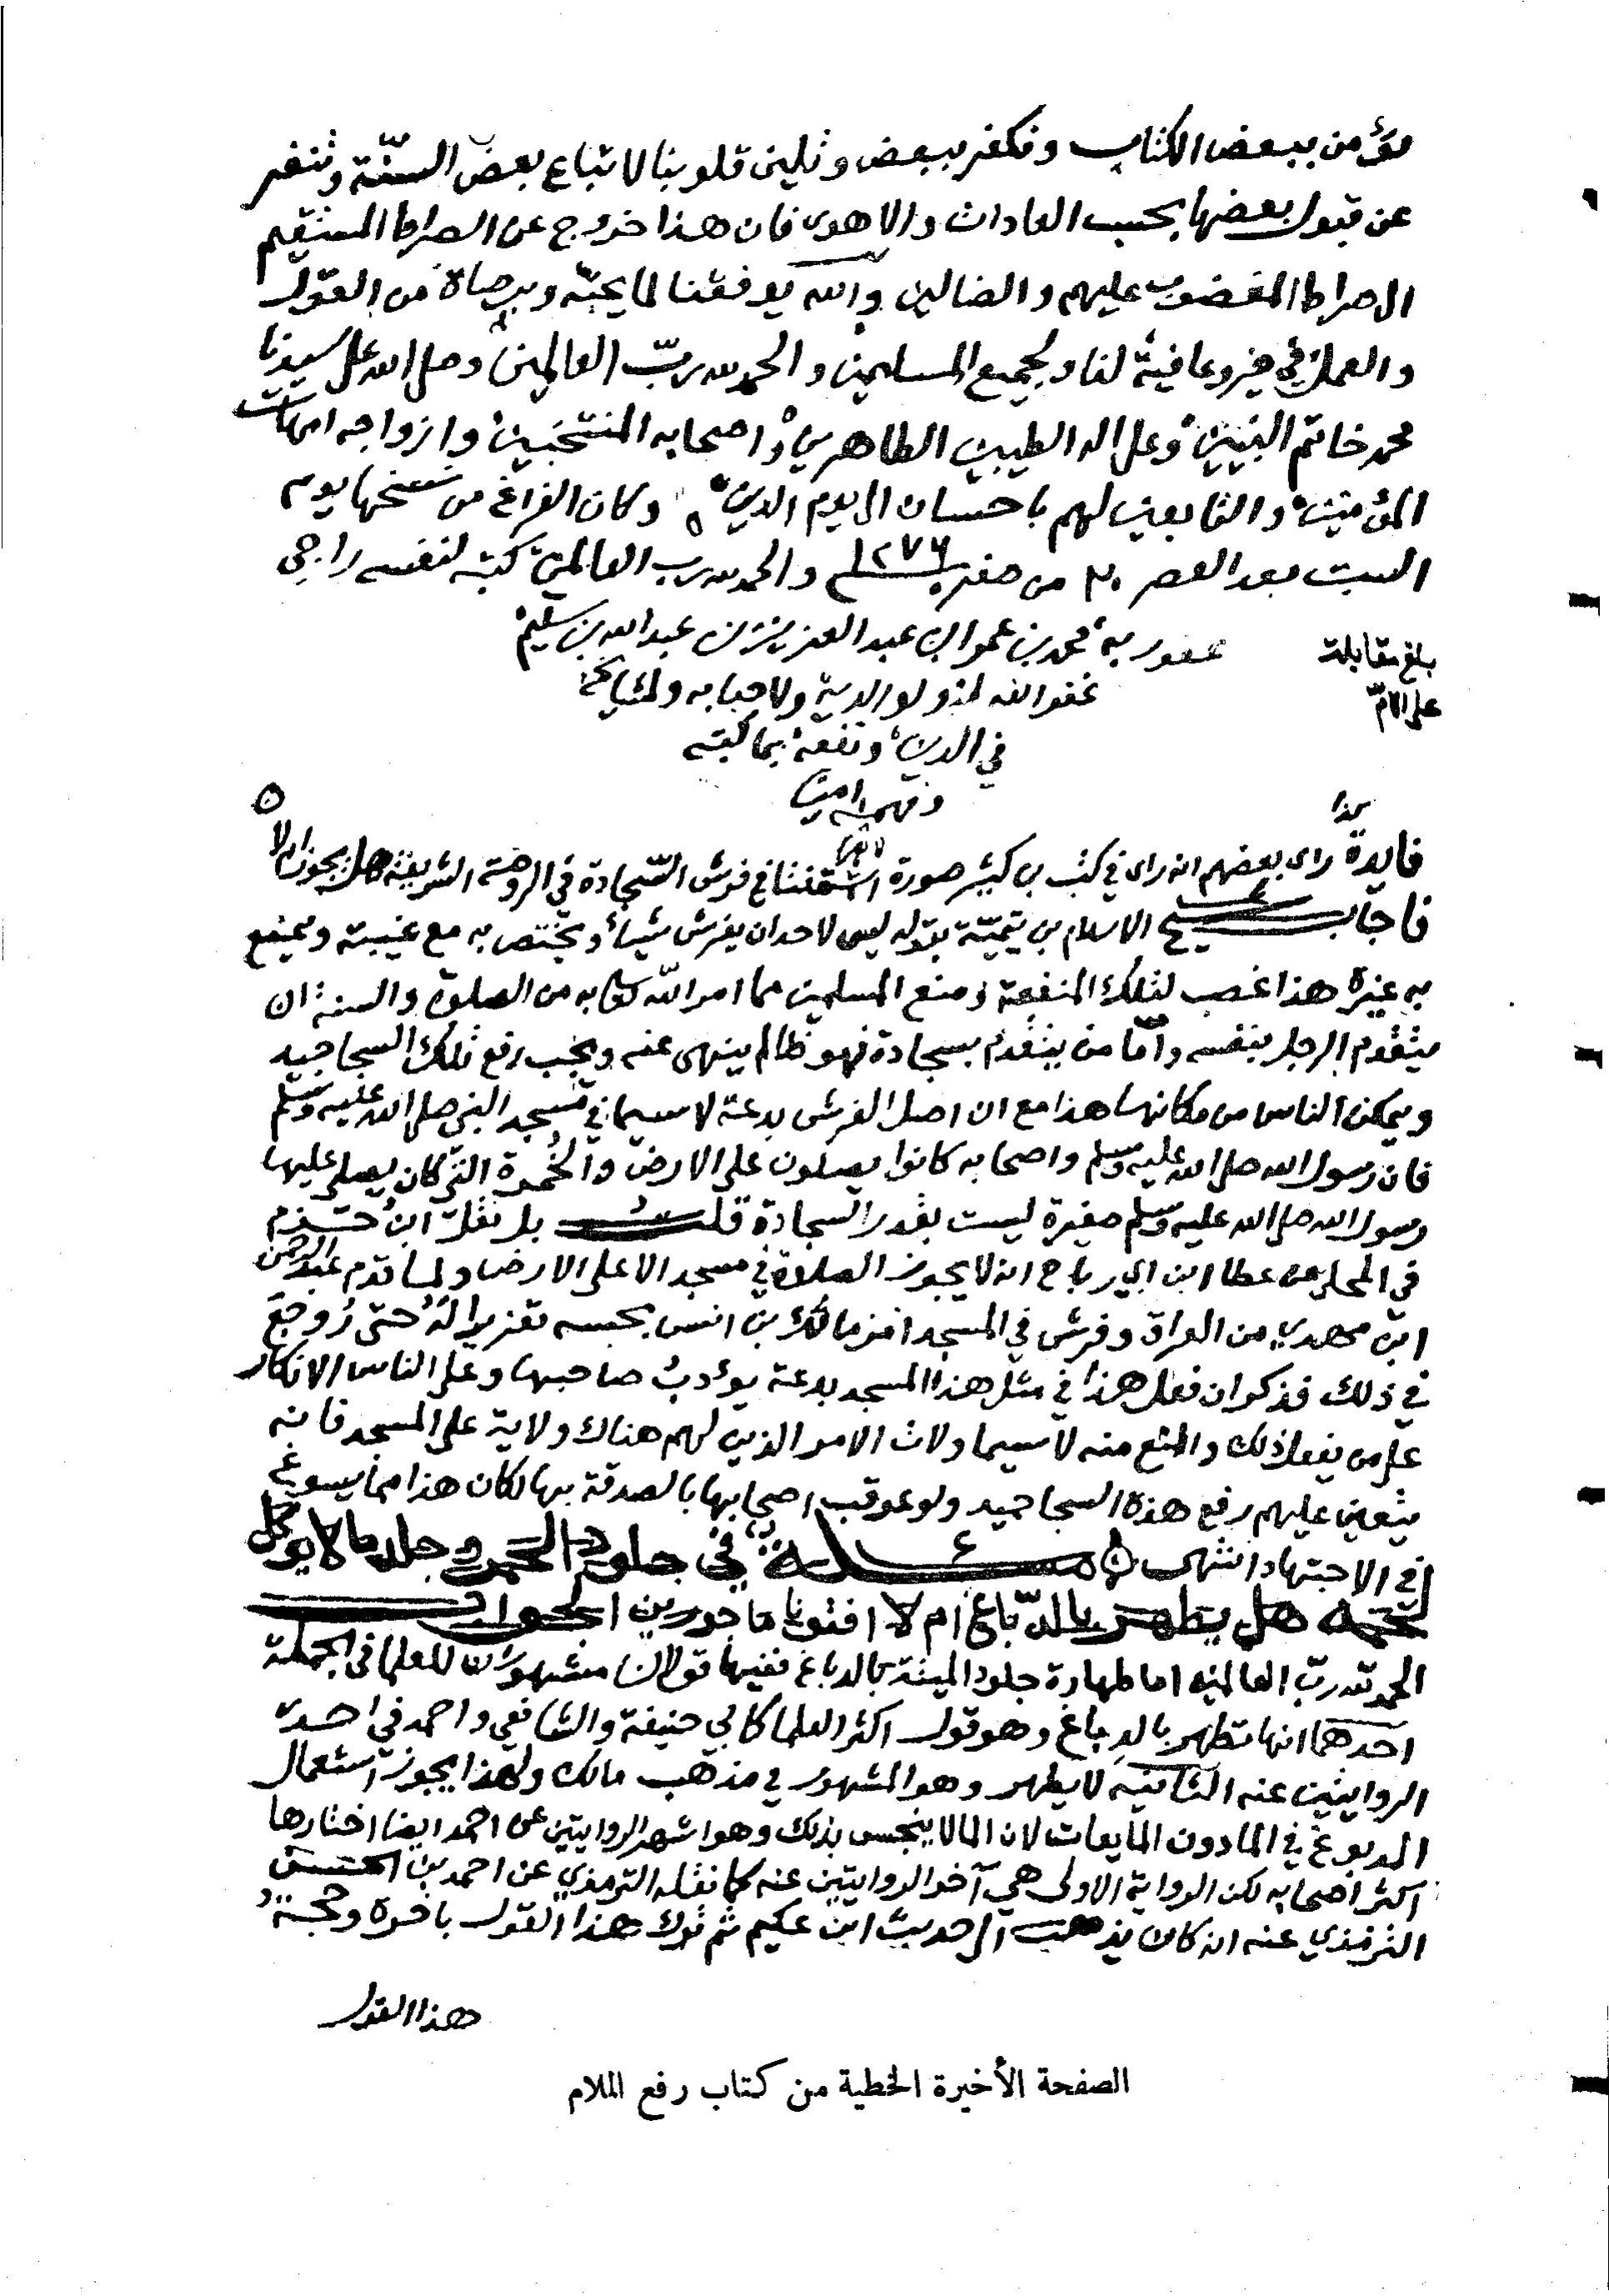 نؤمن ببعض الكتاب ونكفر ببعض وتلين قلوبنا لاتباع بعض السنّة وتنفر
عن قبول بعضها بحسب العادات والاهوى فان هذا خروج عن الصراط المستقيم
الى صراط المغضوب عليهم والضالين والله يوفقنا لما يحبّه ويرضاه من القول
والعمل في خير وعافية لنا ولجميع المسلمين والحمد لله ربّ العالمين وصلى الله على سيدنا
محمد خاتم النبيين وعلى اله الطيبين الطاهرين واصحابه المنتخبين وازواجه امهات
المؤمنين والتابعين لهم باحسان الى يوم الدين ه وكان الفراغ من نسخها يوم
السبت بعد العصر ٢٠ من صفر ١٢٧٦ والحمد لله رب العالمين كتبه لنفسه راجي
عفو ربه محمد بن عمر ابن عبد العزيز بن عبد الله بن سليم
غفر الله له ولوالديه ولاحبابه ولمشايخه
في الدين ونفعه بما كتبه
وفهمه امين
بلغ مقابلة
على الامّ
فايدة راى بعضهم انه راى في كتب بن كثير صورة استفتنا في فرش السّجادة في الروضة الشريفة هل يجوز ام لا
فاجاب شيخ الاسلام بن تيميّة بقوله ليس لاحد ان يفرش شيأ ويختص به مع غيبته ويمنع
به غيره هذا غصب لتلك المنفعة ومنع المسلمين مما امر الله تعالى به من الصلوة والسنة ان
يتقدم الرجل بنفسه وامّا من يتقدم بسجادة فهو ظالم ينهى عنه ويجب رفع تلك السجاجيد
ويمكن الناس من مكانها هذا مع ان اصل الفرش بدعة لا سيما في مسجد النبي صلى الله عليه وسلم
فان رسول الله صلى الله عليه وسلم واصحابه كانوا يصلون على الارض والخُمرة التي كان يصلي عليها
رسول الله صلى الله عليه وسلم صغيرة ليست بقدر السجادة قلت بل نقل ابن حزم
في المحلى عن عطا ابن ابي رباح انه لا يجوز الصلاة في مسجد الا على الارض ولما قدم عبد الرحمن
ابن مهدي من العراق وفرش في المسجد امر مالك بن انس بحبسه تعزيرا له حتى رُوجعَ
في ذلك فذكر ان فعل هذا في مثل هذا المسجد بدعة يؤدبُ صاحبها وعلى الناس الانكار
على من يفعل ذلك والمنع منه لا سيما ولات الامر الذين لهم هناك ولاية على المسجد فانه
يتعين عليهم رفع هذه السجاجيد ولو عوقب اصحابها بالصدقة بها لكان هذا مما يسوغ
في الاجتهاد انتهى ه مسئلة في جلود الحمر وجلد ما لا يوكل
لحمه هل يطهر بالدّباغ ام لا افتونا ماجورين الجواب
الحمد لله ربّ العالمين اما طهارة جلود الميتة بالدباغ ففيها قولان مشهوران للعلما في الجملة
احدهما انها تطهر بالدباغ وهو قول اكثر العلما كابي حنيفة والشافعي واحمد في احدى
الروايتين عنه الثانيه لا يطهر وهو المشهور في مذهب مالك ولهذا يجوز استعمال
المدبوغ في الما دون المايعات لان الما لا ينجس بذلك وهو اشهر الروايتين عن احمد ايضا اختارها
اكثر اصحابه لكن الرواية الاولى هي آخر الروايتين عنه كما نقله الترمذي عن احمد بن الحسن
الترمذي عنه انه كان يذهب الى حديث ابن عكيم ثم ترك هذا القول باخرة وحجّة
هذا القول
الصفحة الأخيرة الخطية من كتاب رفع الملام